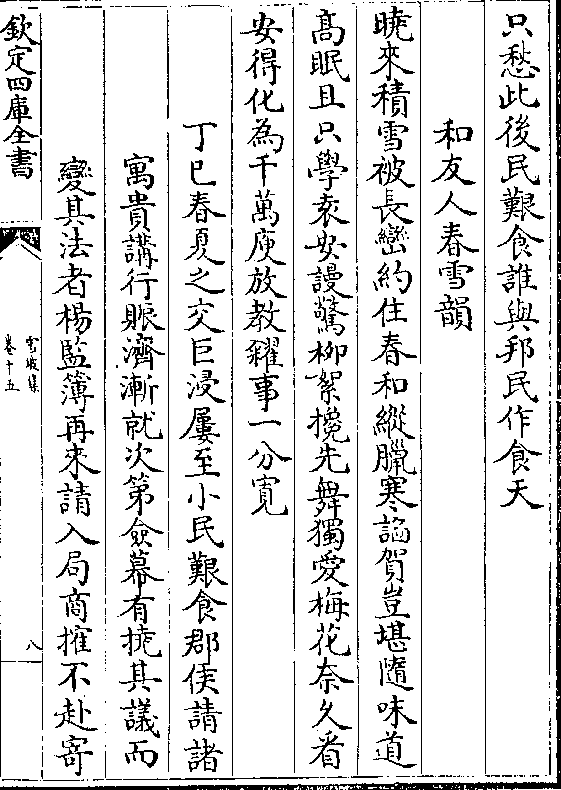 只愁此後民艱食誰與邦民作食天
和友人春雪韻
曉來積雪被長巒約住春和縱臘寒謟賀豈堪隨味道
髙眠且只學袁安謾驚柳絮攙先舞獨愛梅花奈久看
安得化為千萬庾放教糴事一分寛
丁巳春夏之交巨浸屢至小民艱食郡侯請諸
寓貴講行賑濟漸就次第僉幕有撓其議而
變其法者楊監簿再來請入局商搉不赴寄
欽定四庫全書
雪坡集
卷十五
八